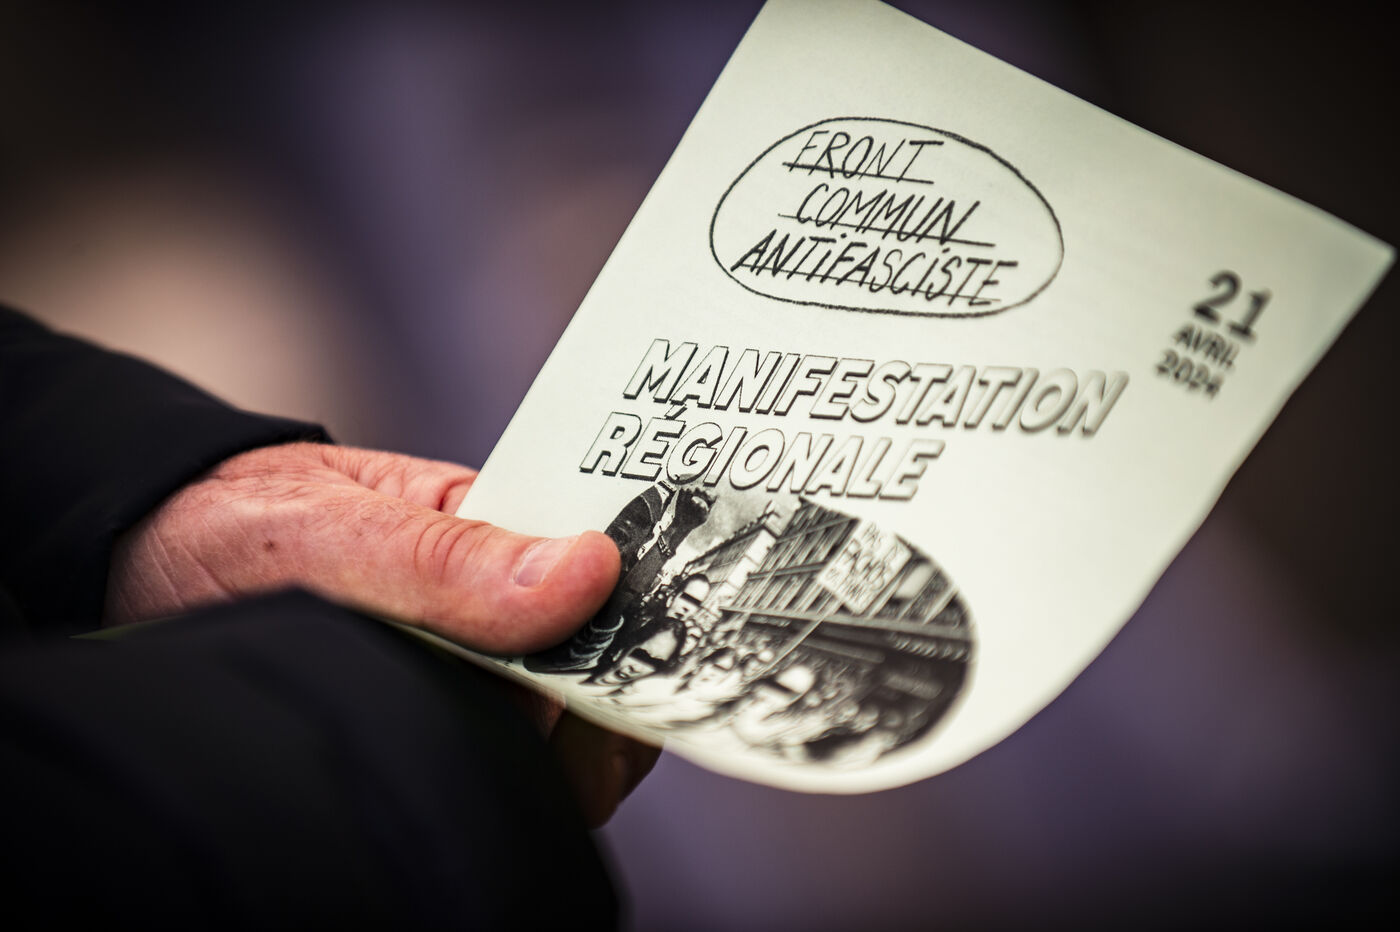 FRONT
COMMUN
ANTIFASCISTE
21
AVRIL
2024
MANIFESTATION
RÉGIONALE
PAS DE